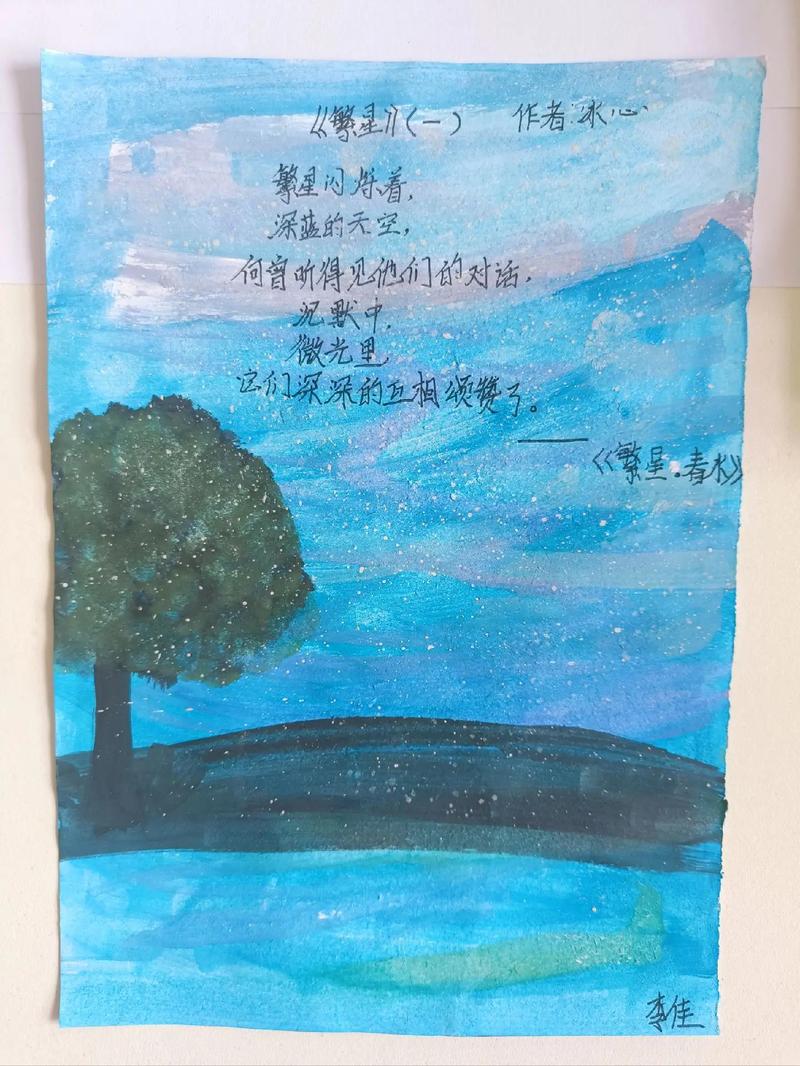 《繁星》(一) 作者:冰心
繁星闪烁着,
深蓝的天空,
何曾听得见他们的对话,
沉默中,
微光里,
它们深深的互相颂赞了。
——
《繁星·春水》
李佳